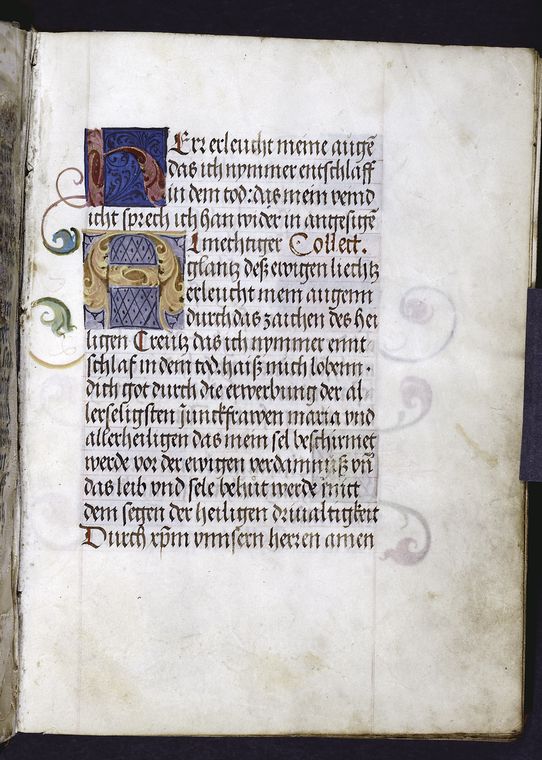 HErr erleucht meine augē
das ich nymmer entschlaff
in dem tod: das mein veind
icht sprech ich han wider in angesigē
Almechtiger Collect.
glantz deß ewigen liechtz
erleucht mein augenn
durch das zaichen des hei
ligen Creutz das ich nymmer ennt
schlaf in dem tod. haiß mich lobenn.
dich got durch die erwerbung der al
lerseligsten junckfrawen maria vnd
allerheiligen das mein sel beschirmet
werde vor der ewigen verdamnuß vn̄
das leib vnd sele behüt werde mitt
dem segen der heiligen driualtigkeit
Durch xp̄m vnnsern herren amen